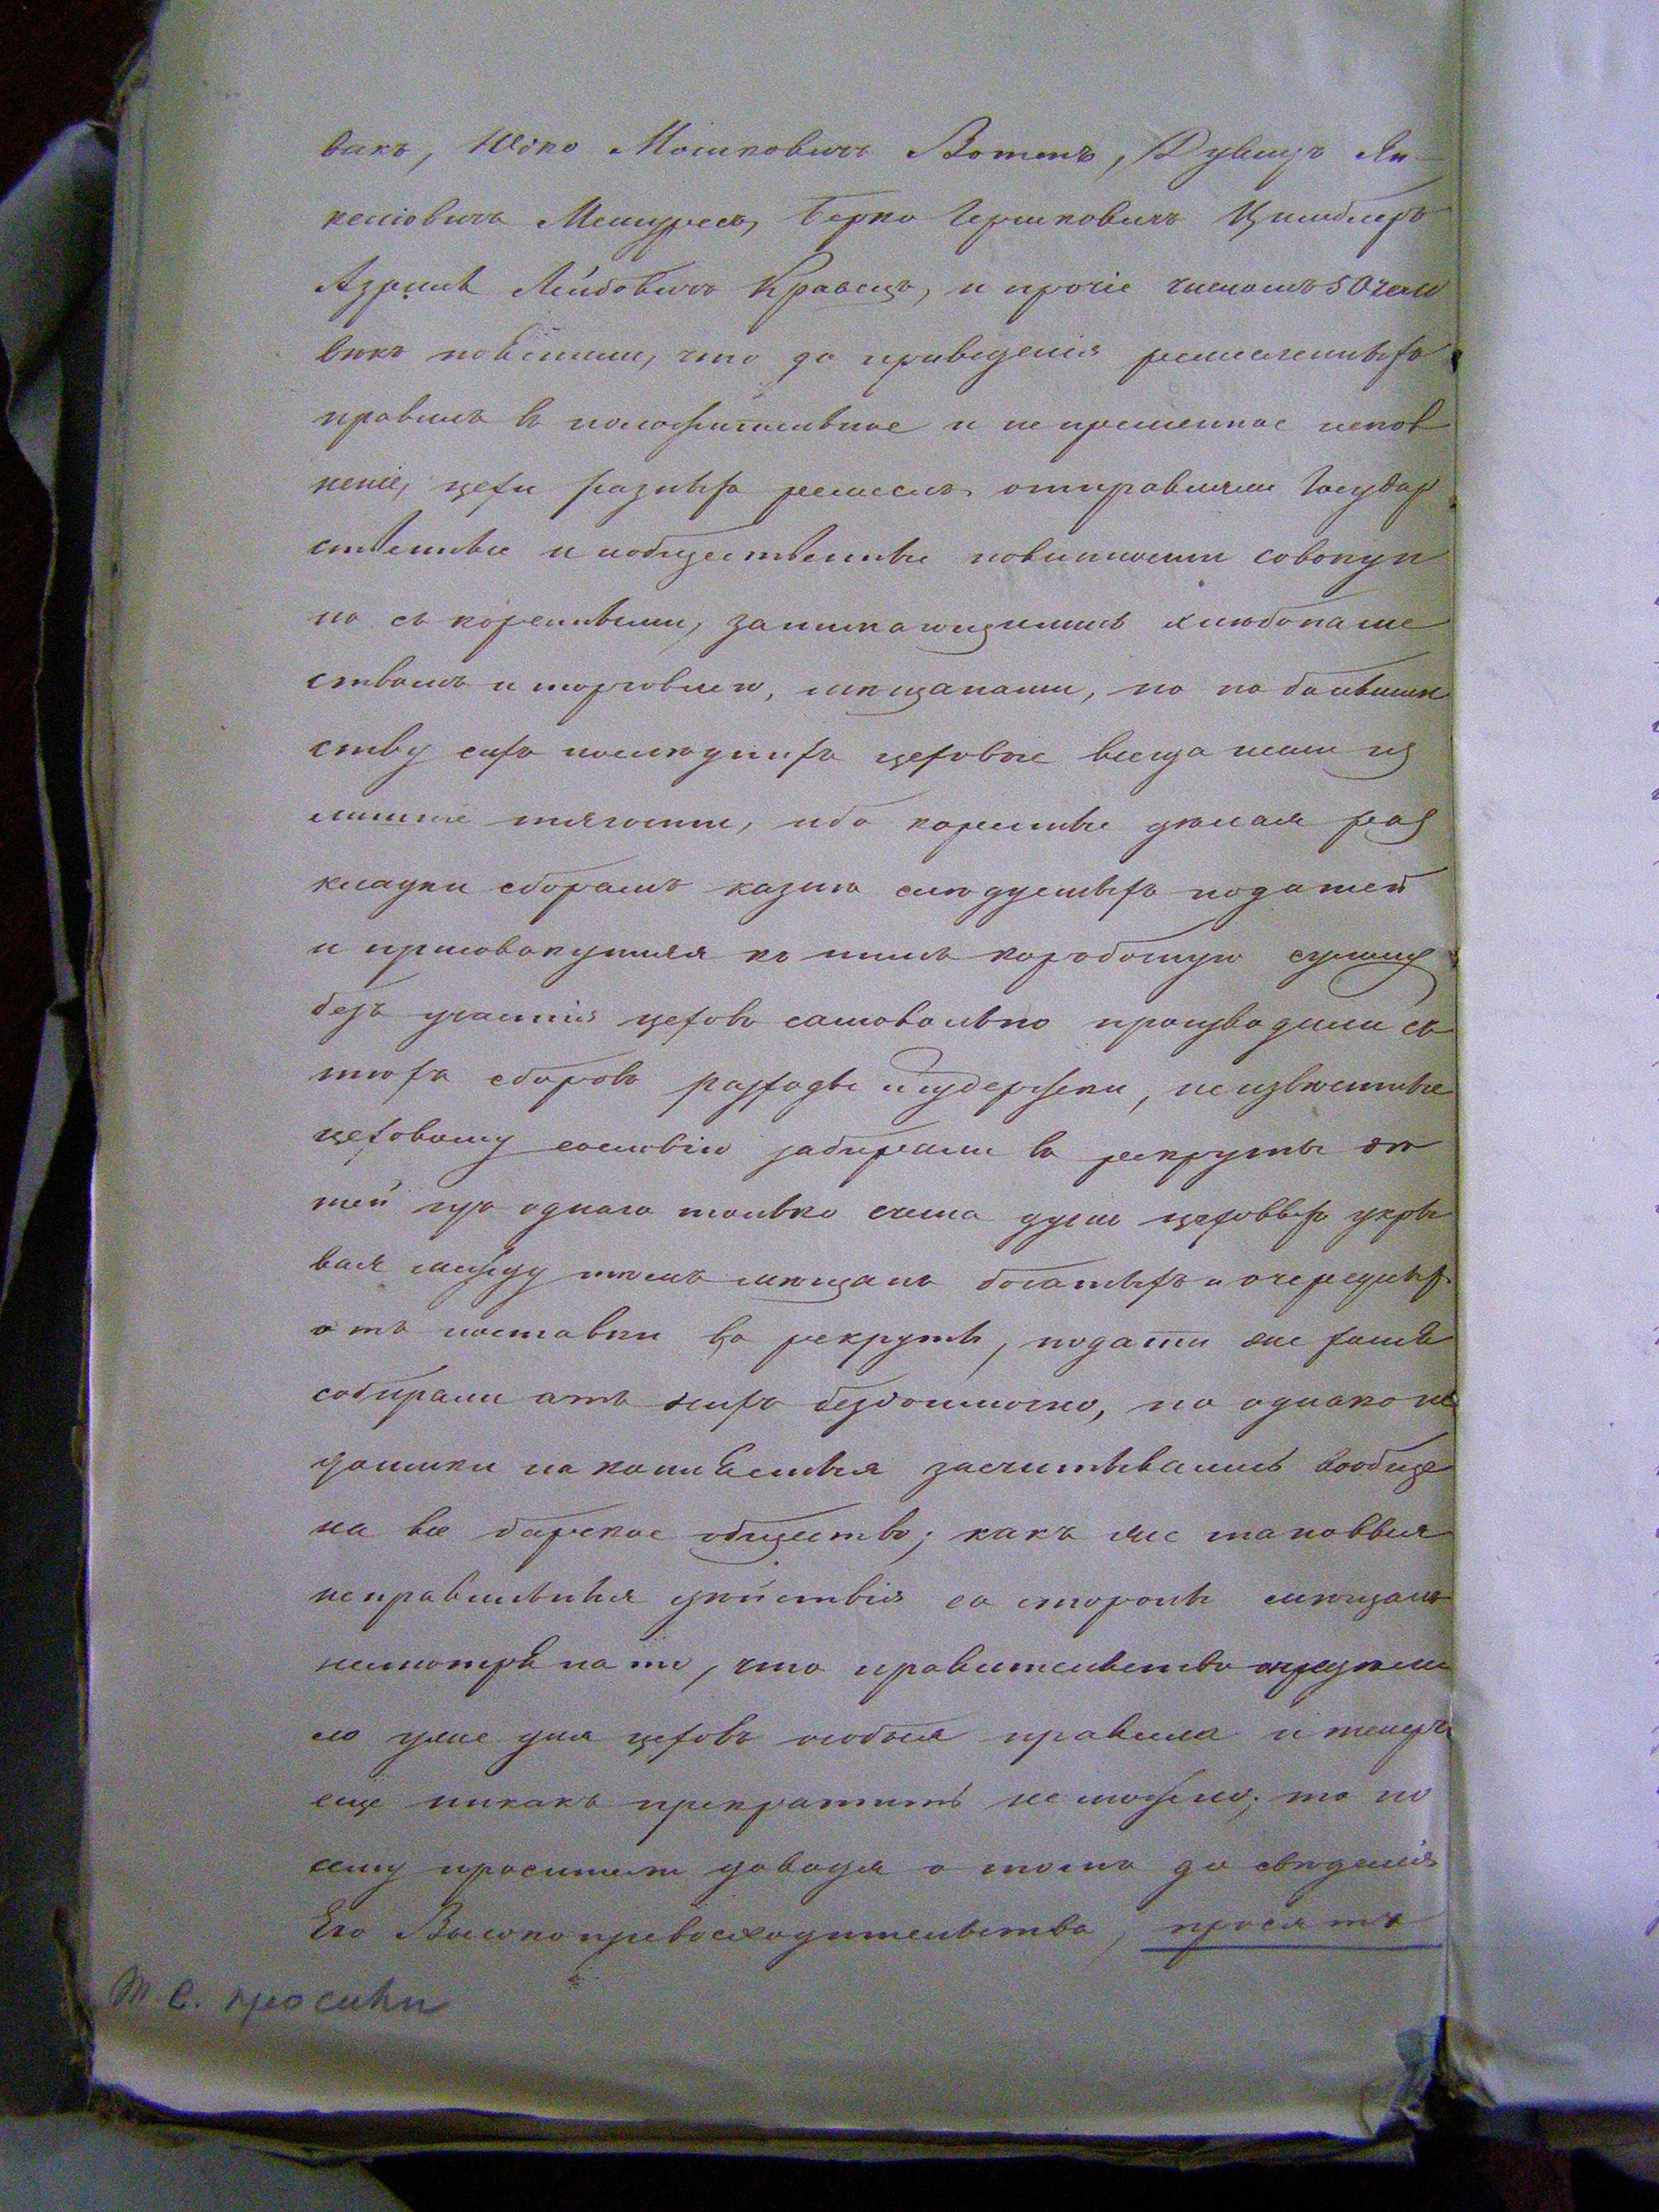 вакъ, Іосио Мошковичъ Воттъ, Дувидъ Ян-
келіовичъ Мешуресъ, Берко Гершковичъ Цимблеръ
Азриль Лейбовичъ Кравецъ, и прочіе числомъ 50 чело
вѣкъ поясними, что до приведенія ремесленныхъ
правилъ въ положительное и непременное испол
неніе, цехи разныхъ ремеслъ отправляли Государ
ственные и иобщественные повинности совокуп
но съ коренными, занимающимись хлѣбопаше
ствомъ и торговлею, мѣщанами, но по большин
ству сихъ послѣднихъ цеховые всегда несли из
лишніе тягости, ибо коренные дѣлая раз
кладки сборамъ казны слѣдуемыхъ податей
и присовокупляя къ нимъ коробочную сумму
безъ участія цеховъ самовольно производили съ
тѣхъ сборовъ расходы и издержки, неизвѣстные
цеховому сословію забирали въ рекруты дѣ
тей изъ одного только счета душъ цеховыхъ укры
вая между тѣмъ мѣщанъ богатыхъ и очередныхъ
отъ поставки въ рекруты, подати же хотя
собирали отъ нихъ бездоимочно, но однако не
доимки накопляемыя засчитывались вообще
на все барское общество; какъ же таковыя
неправильныя дѣйствія со стороны мѣщанъ
несмотря на то, что правительство определи
ло уже для цеховъ особыя правила и теперь
еще никакъ прекратить не можно; то по
сему просители доводя о томъ до свѣденія
Его Высокопревосходительства, просятъ
Т. С. просили